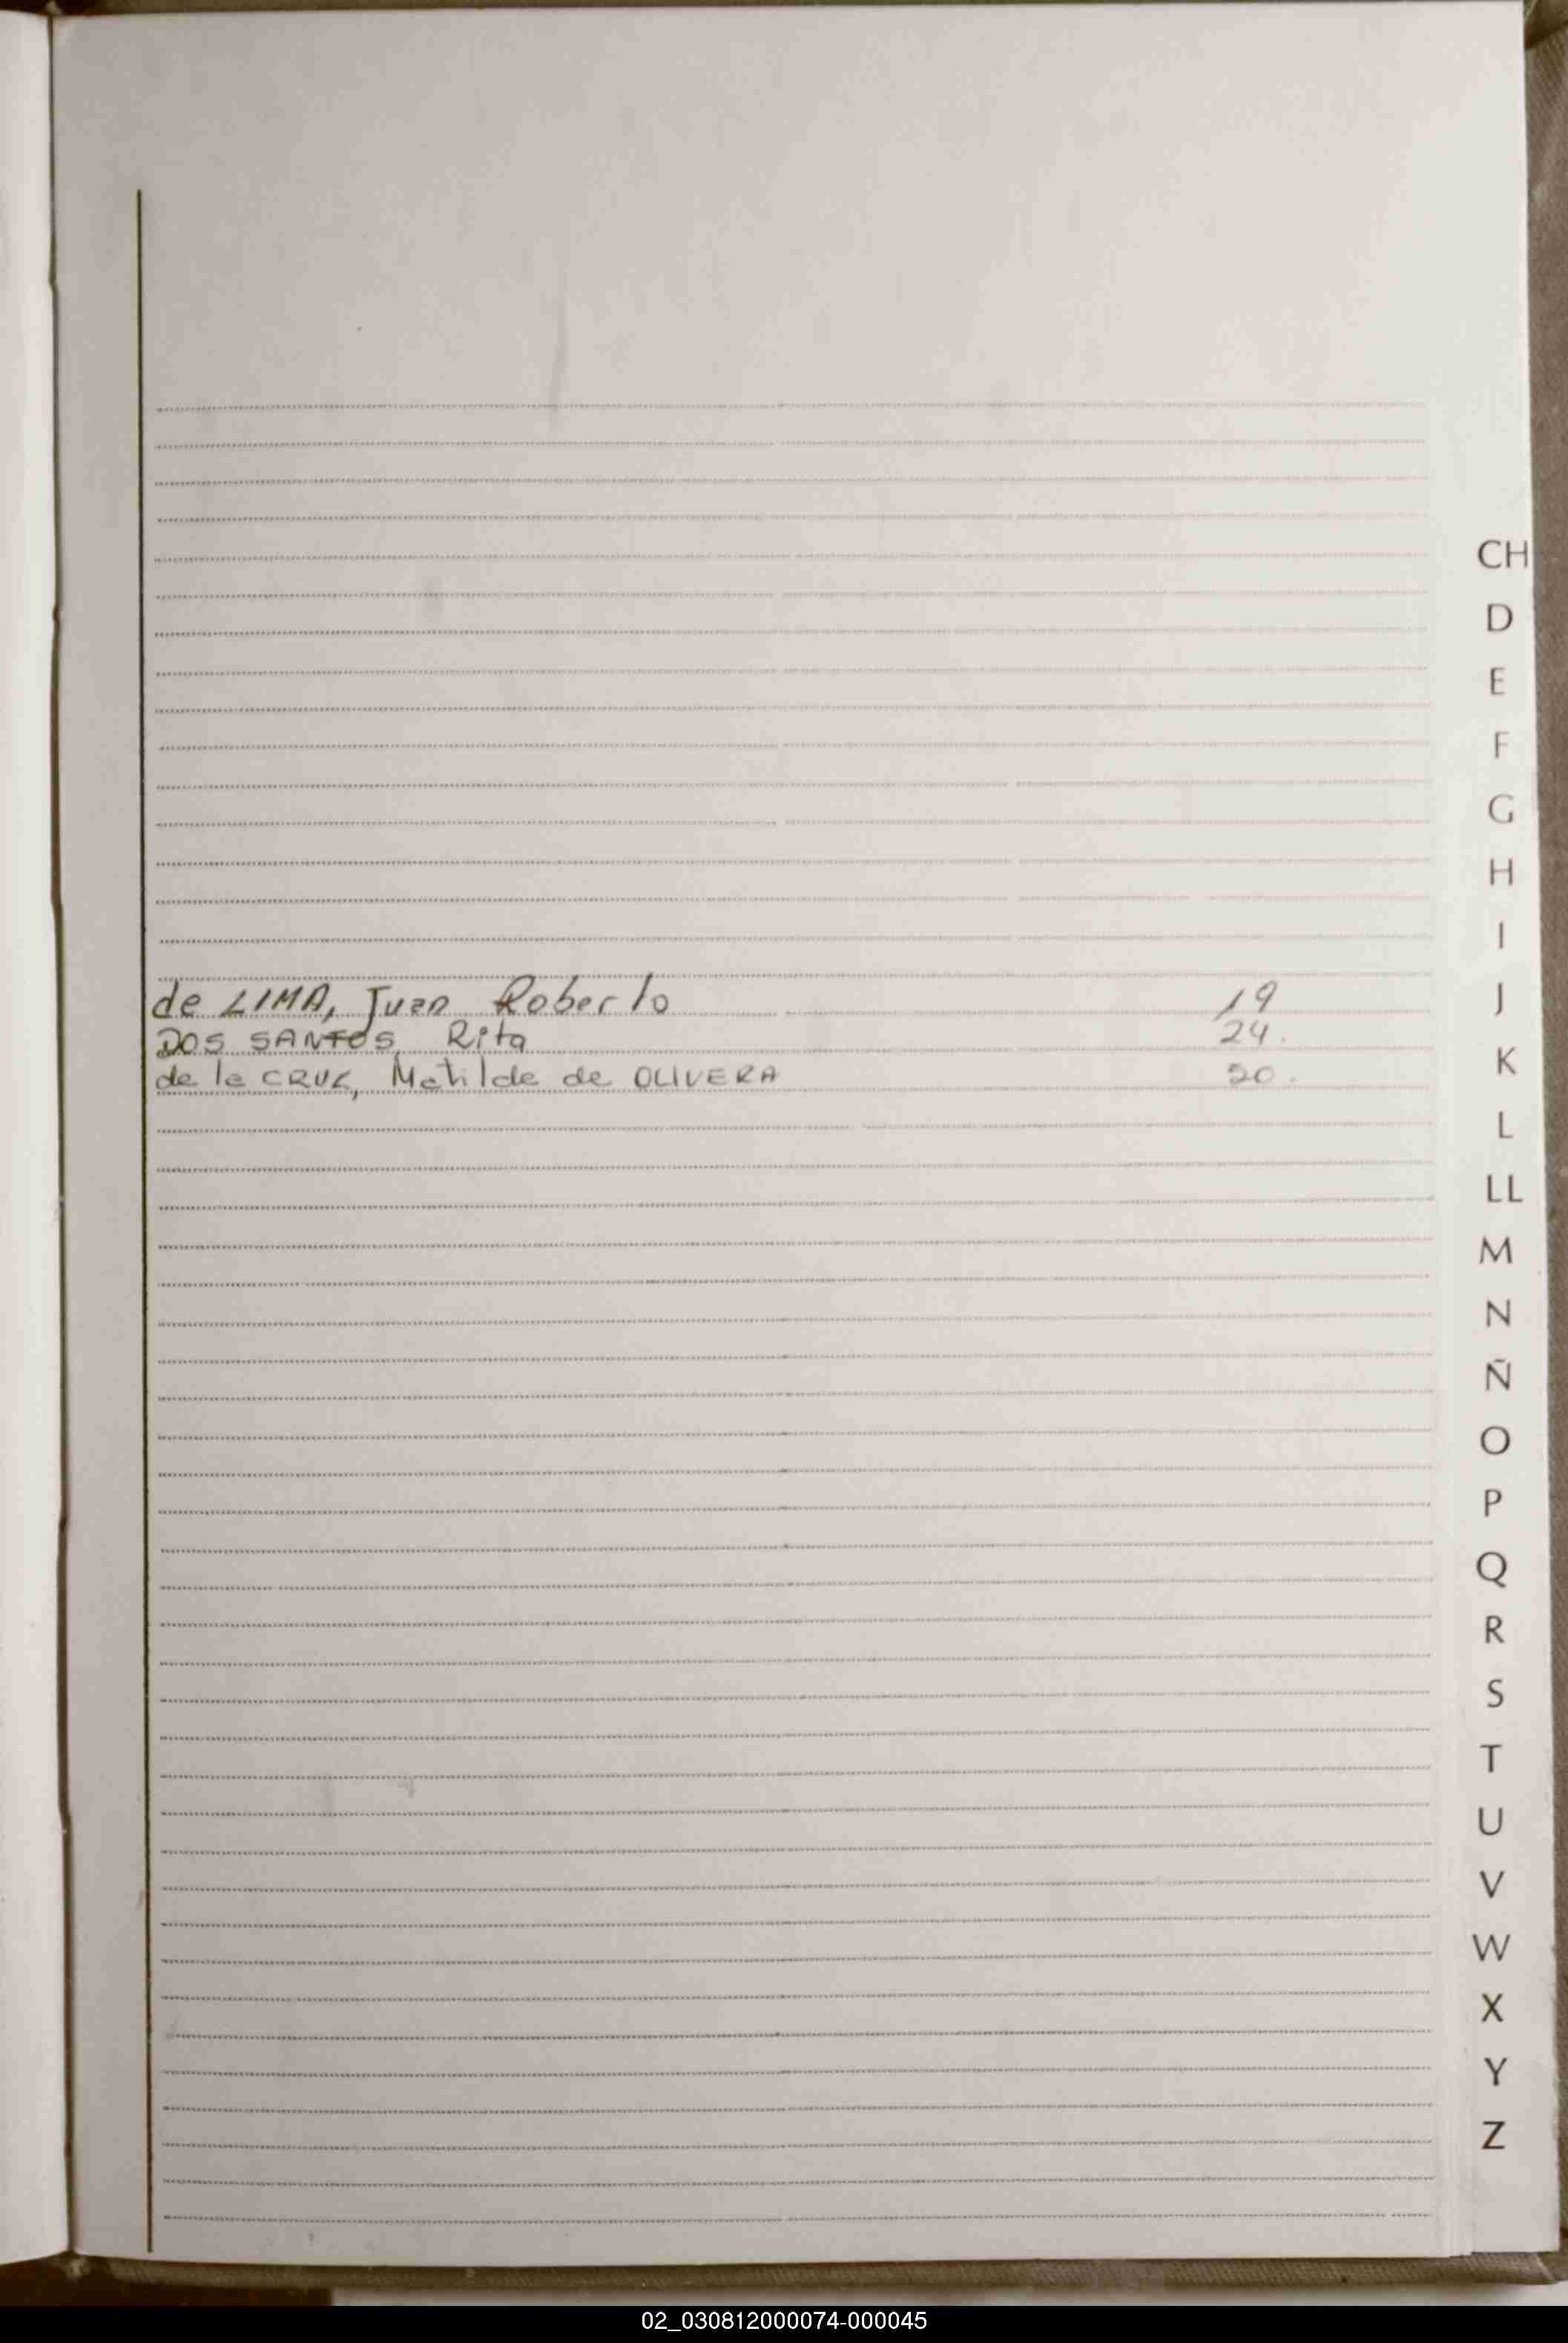 de LIMA, Juan Roberto 19
DOS SANTOS, Rita 24.
de la CRUZ, Matilde de OLIVERA 20.
CH
D
E
F
G
H
I
J
K
L
LL
M
N
Ñ
O
P
Q
R
S
T
U
V
W
X
Y
Z
02_030812000074-000045